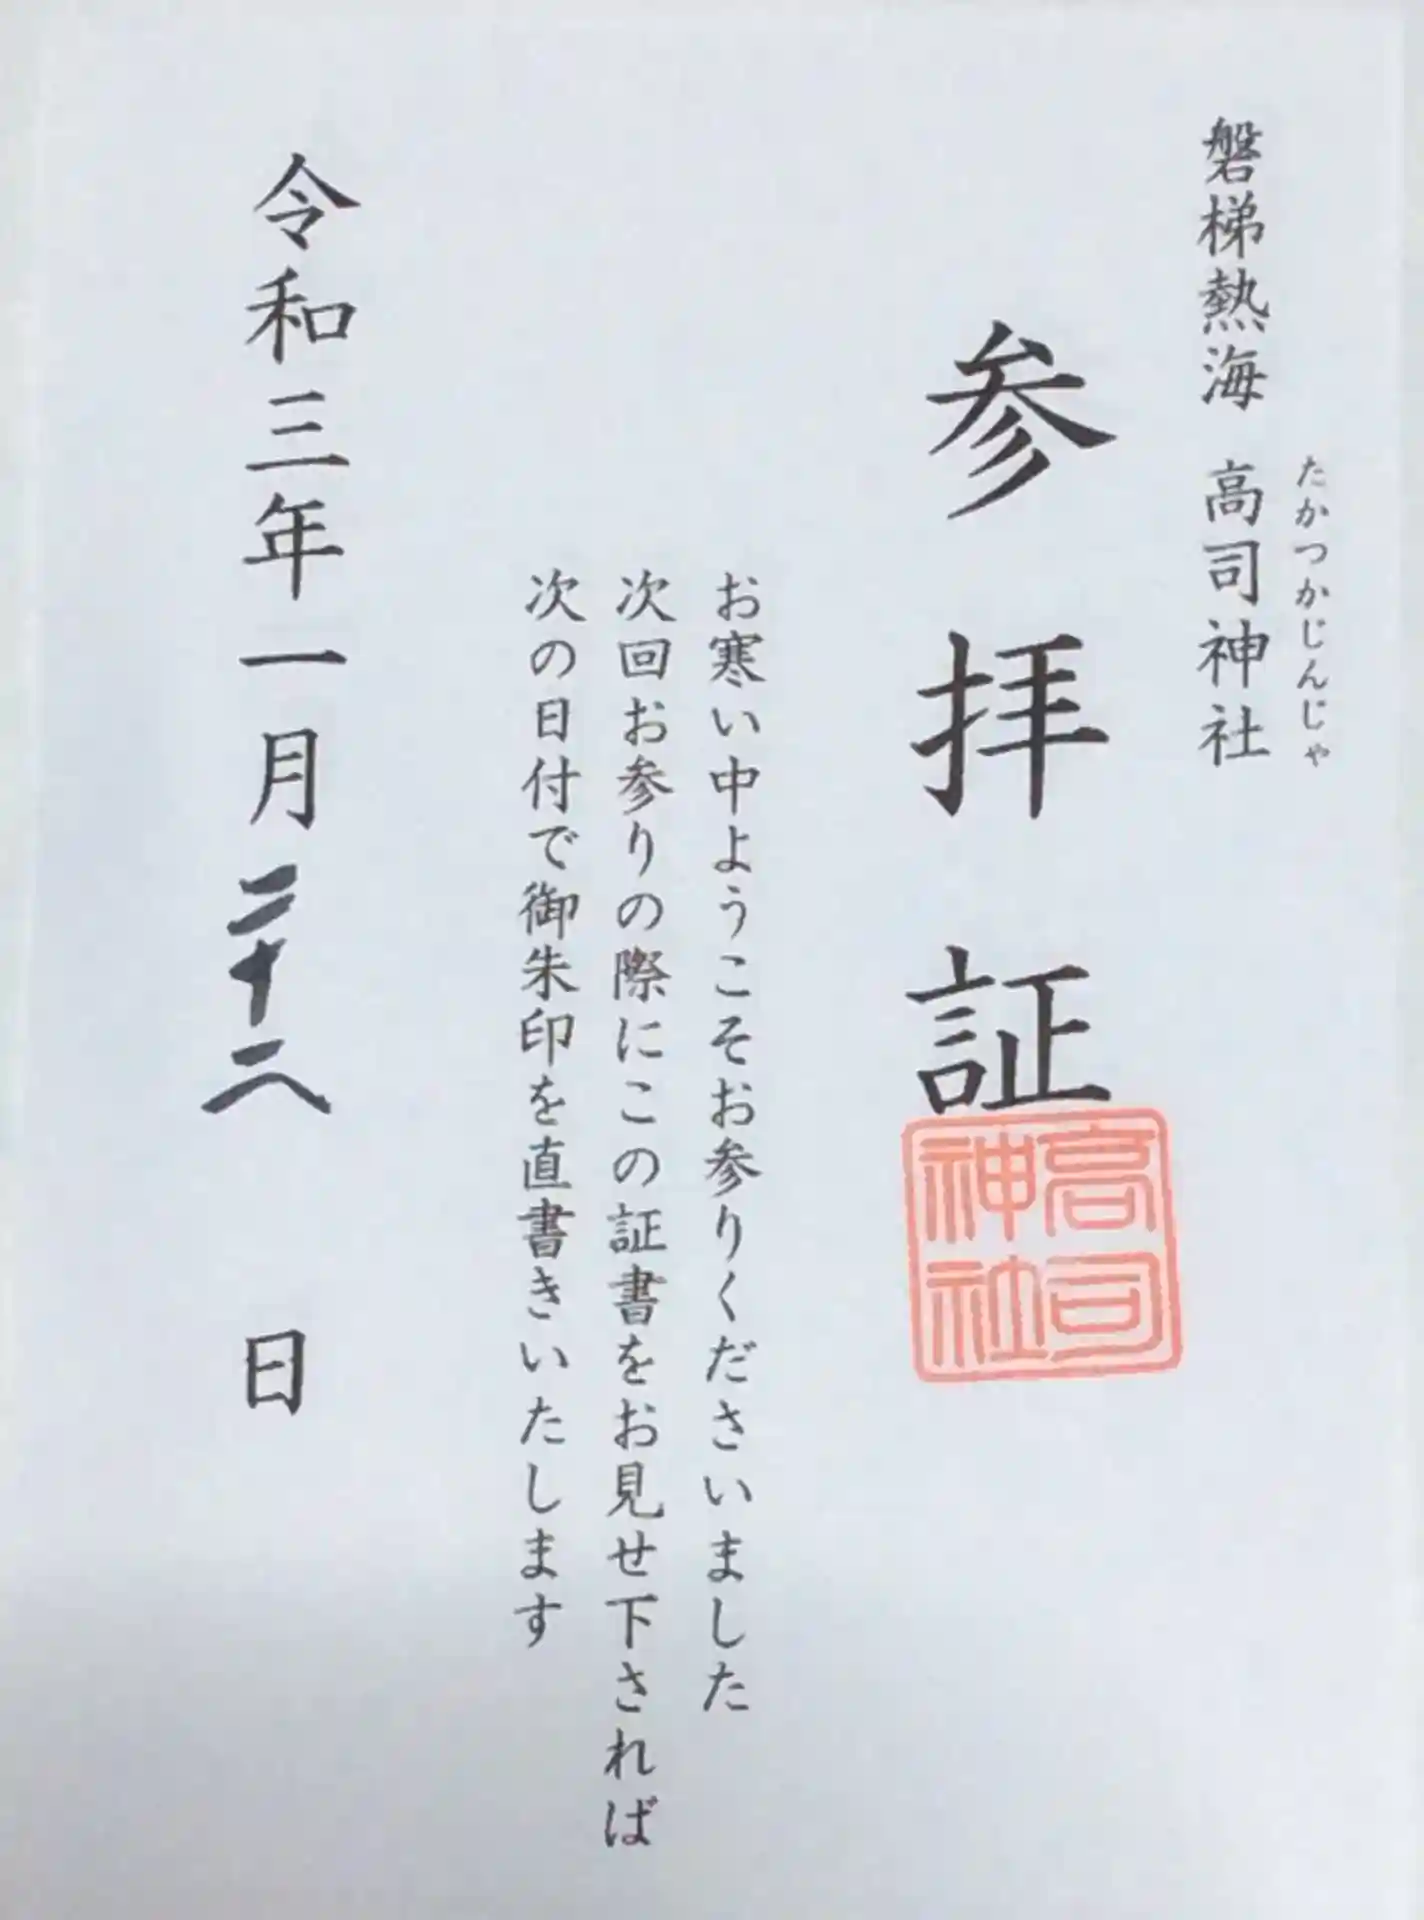 磐梯熱海 高司神社
たかつかじんじゃ
参拝証
高司神社
お寒い中ようこそお参りくださいました
次回お参りの際にこの証書をお見せ下されば
次の日付で御朱印を直書きいたします
令和三年一月二十 日